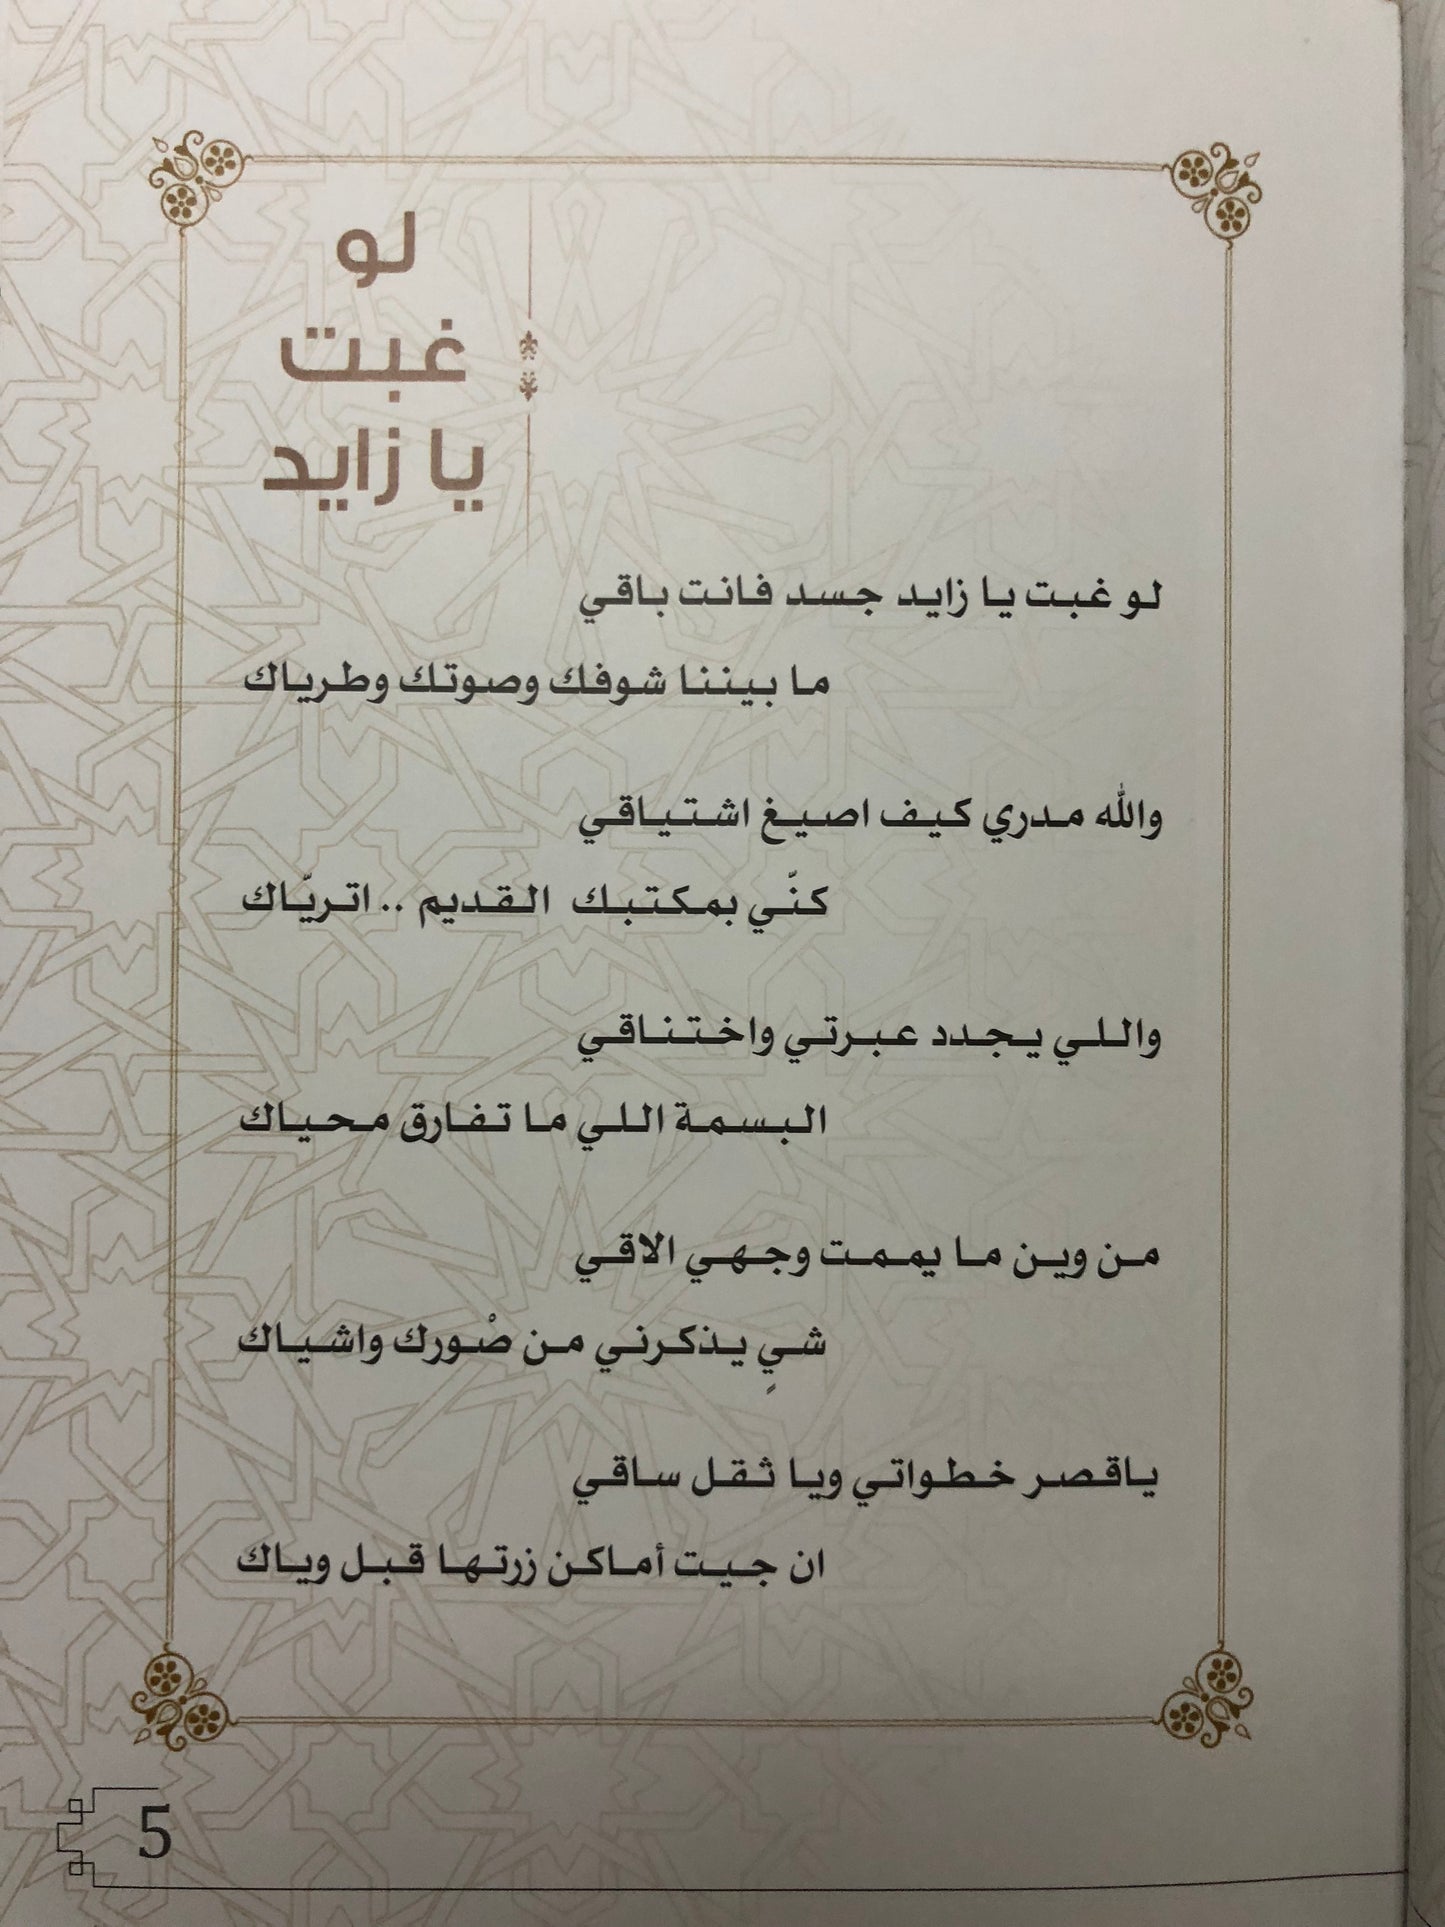 لو
غبت
يا زايد
لو غبت يا زايد جسد فانت باقي
ما بيننا شوفك وصوتك وطرياك
والله مدري كيف اصيغ اشتياقي
كنّي بمكتبك القديم .. اتريّاك
واللي يجدد عبرتي واختناقي
البسمة اللي ما تفارق محياك
من وين ما يممت وجهي الاقي
شيٍ يذكرني من صْورك واشياك
ياقصر خطواتي ويا ثقل ساقي
ان جيت أماكن زرتها قبل وياك
5